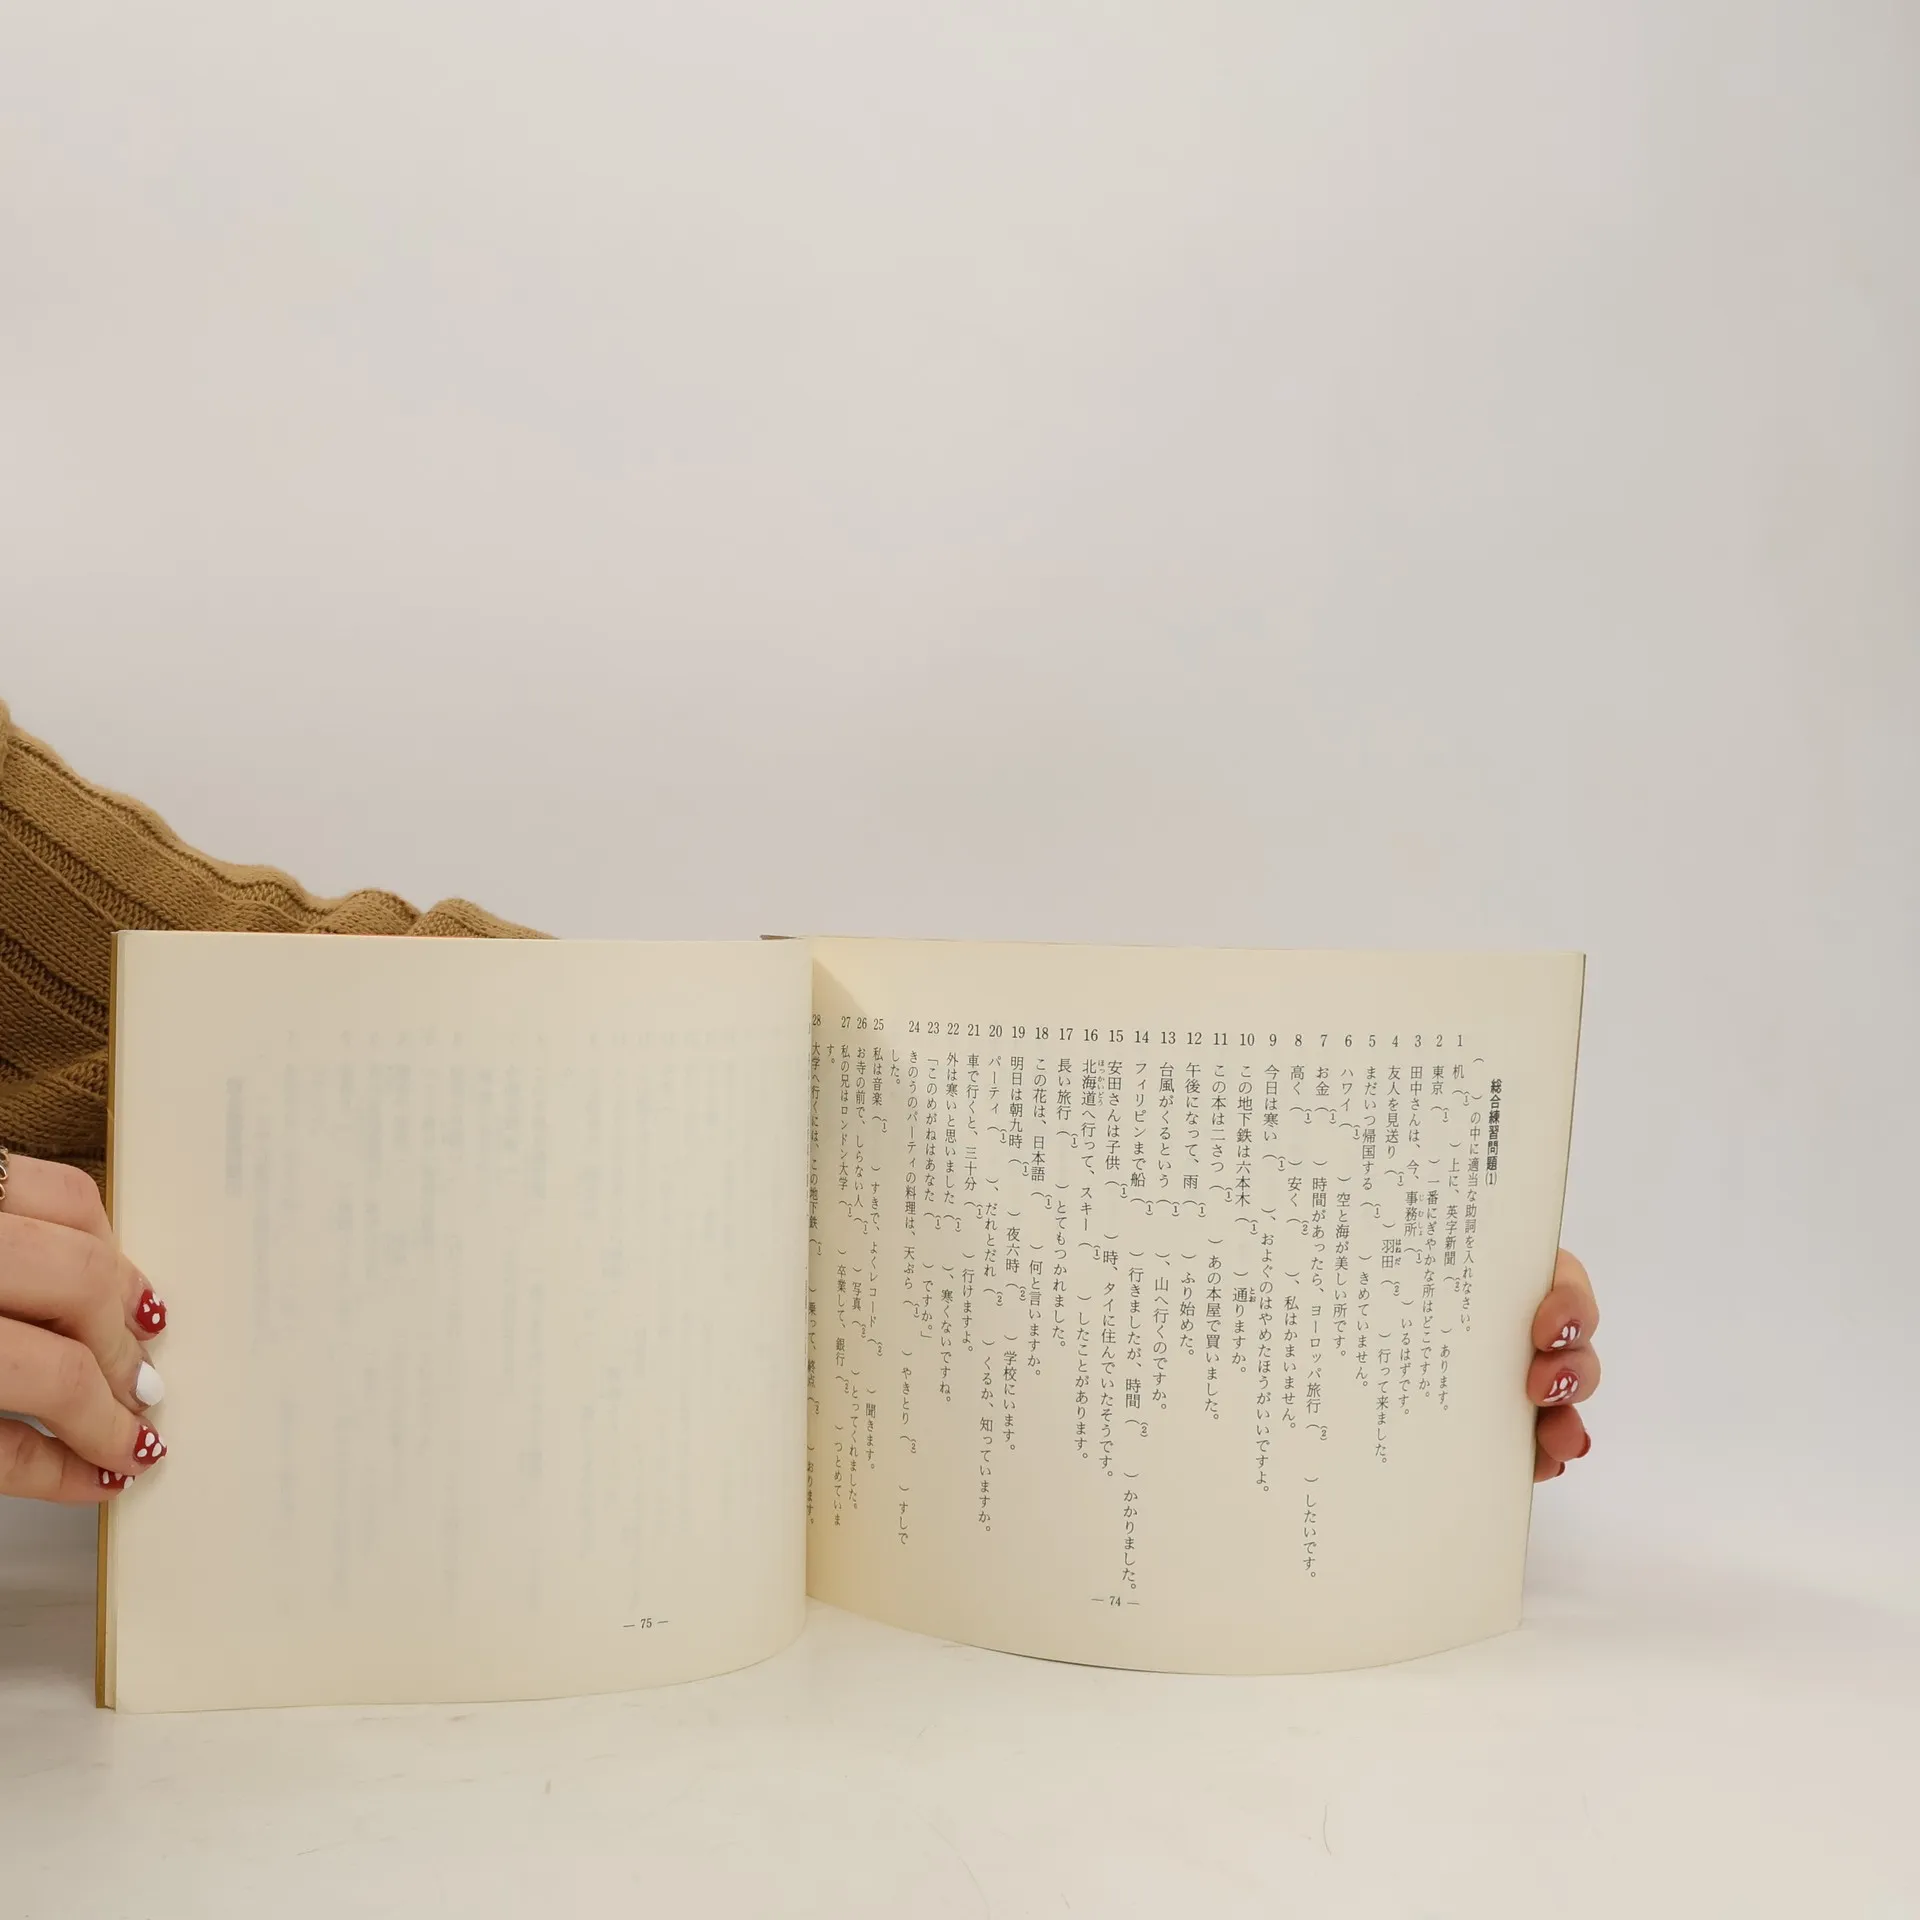 総合練習問題(1)
(　　)の中に適当な助詞を入れなさい。
1 机((1)　　)上に、英字新聞((2)　　)あります。
2 東京((1)　　)一番にぎやかな所はどこですか。
3 田中さんは、今、事務所((1)　　)いるはずです。
4 友人を見送り((1)　　)羽田((2)　　)行って来ました。
5 まだいつ帰国する((1)　　)きめていません。
6 ハワイ((1)　　)空と海が美しい所です。
7 お金((1)　　)時間があったら、ヨーロッパ旅行((2)　　)したいです。
8 高く((1)　　)安く((2)　　)、私はかまいません。
9 今日は寒い((1)　　)、およぐのはやめたほうがいいですよ。
10 この地下鉄は六本木((1)　　)通りますか。
11 この本は二さつ((1)　　)あの本屋で買いました。
12 午後になって、雨((1)　　)ふり始めた。
13 台風がくるという((1)　　)、山へ行くのですか。
14 フィリピンまで船((1)　　)行きましたが、時間((2)　　)かかりました。
15 安田さんは子供((1)　　)時、タイに住んでいたそうです。
16 北海道へ行って、スキー((1)　　)したことがあります。
17 長い旅行((1)　　)とてもつかれました。
18 この花は、日本語((1)　　)何と言いますか。
19 明日は朝九時((1)　　)夜六時((2)　　)学校にいます。
20 パーティ((1)　　)、だれとだれ((2)　　)くるか、知っていますか。
21 車で行くと、三十分((1)　　)行けますよ。
22 外は寒いと思いました((1)　　)、寒くないですね。
23 「このめがねはあなた((1)　　)ですか。」
24 きのうのパーティの料理は、天ぷら((1)　　)やきとり((2)　　)すしで
した。
25 私は音楽((1)　　)すきで、よくレコード((2)　　)聞きます。
26 お寺の前で、しらない人((1)　　)写真((2)　　)とってくれました。
27 私の兄はロンドン大学((1)　　)卒業して、銀行((2)　　)つとめていま
す。
28 大学へ行くには、この地下鉄((1)　　)乗って、終点((2)　　)おります。
— 74 —
— 75 —